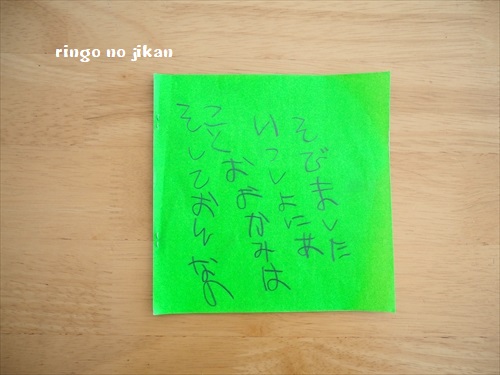 ringo no jikan
そしておんなの
ことおおかみは
いっしょにあ
そびました